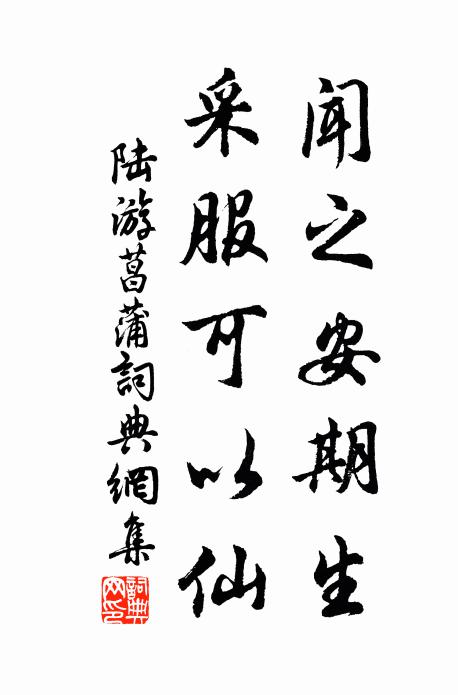 闻之安期生
采服可以仙
陆游菖蒲詞典網集
詞典网印